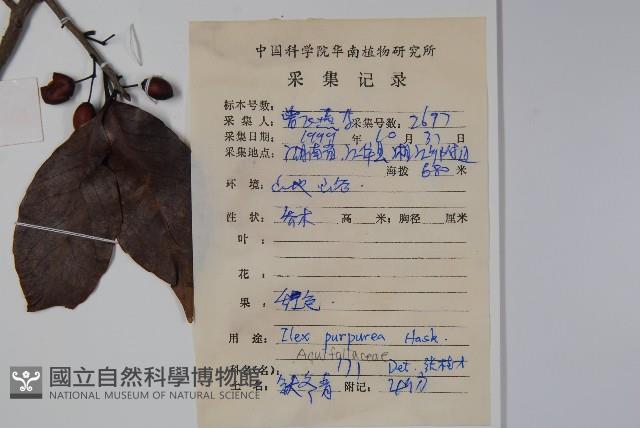 中国科学院华南植物研究所
采集记录
标本号数:
采集人: 曾飞燕 采集号数: 2697
采集日期: 1999 年 10 月 31 日
采集地点: 湖南省,江华县
海拔 680 米
环境: 山地 山谷.
性状: 乔木 高 米; 胸径 厘米
叶:
花:
果: 红色.
用途: Ilex purpurea Hask.
Aquifoliaceae
科名(名): 171 Det.
土名: 冬青 附记:
國立自然科學博物館
NATIONAL MUSEUM OF NATURAL SCIENCE